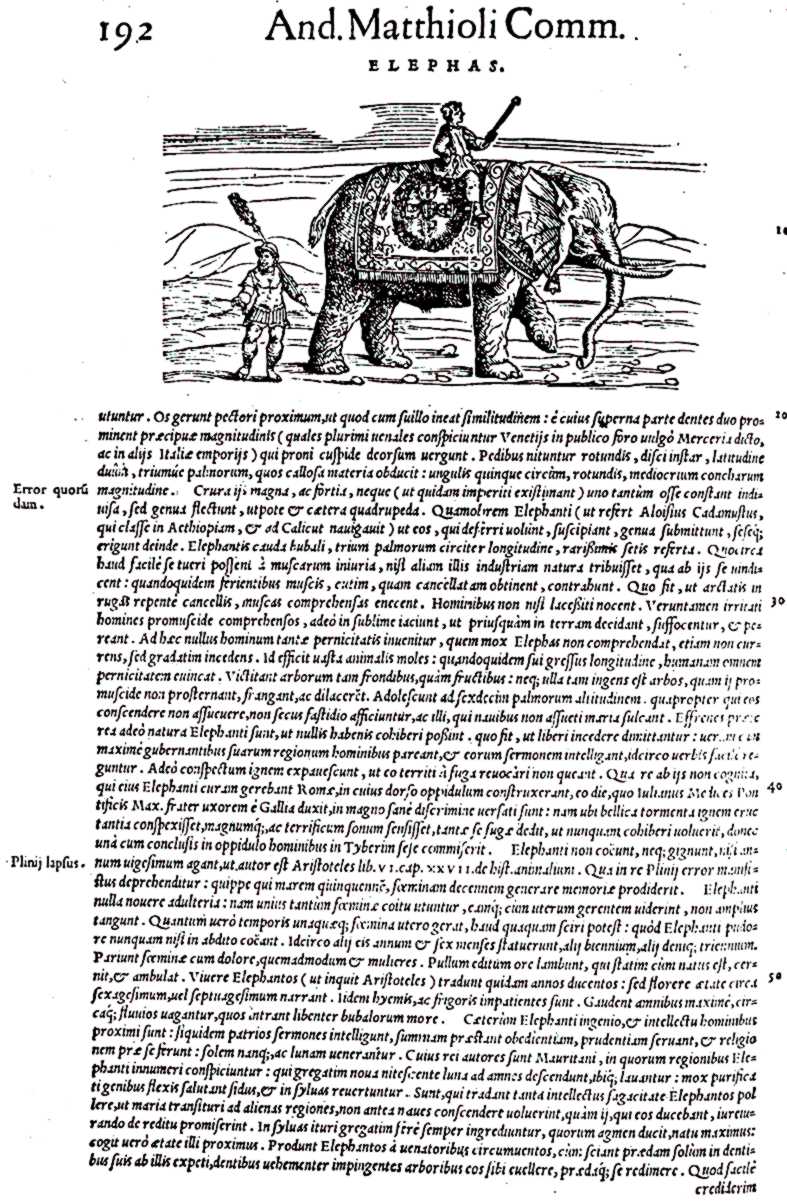 192 And. Matthioli Comm.
ELEPHAS.
utuntur. Os gerunt pectori proximum, ut quod cum suillo ineat similitudinem: è cuius superna parte dentes duo pro=
minent præcipuæ magnitudinis (quales plurimi uenales conspiciuntur Venetijs in publico foro uulgò Merceria dicto,
20
ac in alijs Italiæ emporijs) qui proni cuspide deorsum uergunt. Pedibus nituntur rotundis, disci instar, latitudine
duûm, triumúe palmorum, quos callosa materia obducit: ungulis quinque circùm, rotundis, mediocrium concharum
Error quorũ
dam.
magnitudine. Crura ijs magna, ac fortia, neque (ut quidam imperiti existimant) uno tantùm osse constant indi=
uisa, sed genua flectunt, utpote & cætera quadrupeda. Quamobrem Elephanti (ut refert Aloisius Cadamustus,
qui classe in Aethiopiam, & ad Calicut nauigauit) ut eos, qui deferri uolunt, suscipiant, genua submittunt, seseq;
erigunt deinde. Elephantis cauda bubali, trium palmorum circiter longitudine, rarißimis setis referta. Quocirca
haud facilè se tueri possent à muscarum iniuria, nisi aliam illis industriam natura tribuisset, qua ab ijs se uindi=
cent: quandoquidem ferientibus muscis, cutim, quam cancellatam obtinent, contrahunt. Quo fit, ut arctatis in
rugas repentè cancellis, muscas comprehensas enecent. Hominibus non nisi lacessiti nocent. Veruntamen irritati
30
homines promuscide comprehensos, adeò in sublime iaciunt, ut priusquàm in terram decidant, suffocentur, & pe=
reant. Ad hæc nullus hominum tantæ pernicitatis inuenitur, quem mox Elephas non comprehendat, etiam non cur=
rens, sed gradatim incedens. Id efficit uasta animalis moles: quandoquidem sui gressus longitudine, humanam omnem
pernicitatem euincat. Victitant arborum tam frondibus, quàm fructibus: neq; ulla tam ingens est arbos, quam ij pro=
muscide non prosternant, frangant, ac dilacerẽt. Adolescunt ad sexdecim palmorum altitudinem. quapropter qui eos
conscendere non assueuere, non secus fastidio afficiuntur, ac illi, qui nauibus non assueti maria sulcant. Effrenes præte
rea adeò natura Elephanti sunt, ut nullis habenis cohiberi poßint. quo fit, ut liberi incedere dimittantur: uerùm ut
maximè gubernantibus suarum regionum hominibus pareant, & eorum sermonem intelligant, idcirco uerbis facilè re=
guntur. Adeò conspectum ignem expauescunt, ut eo territi à fuga reuocari non queant. Qua re ab ijs non cognita,
qui eius Elephanti curam gerebant Romæ, in cuius dorso oppidulum construxerant, eo die, quo Iulianus Medices Pon
40
tificis Max. frater uxorem è Gallia duxit, in magno sanè discrimine uersati sunt: nam ubi bellica tormenta ignem eruc
tantia conspexisset, magnumq;, ac terrificum sonum sensisset, tantæ se fugæ dedit, ut nunquam cohiberi uoluerit, donec
unà cum conclusis in oppidulo hominibus in Tyberim sese commiserit. Elephanti non coëunt, neq; gignunt, nisi an=
Plinij lapsus.
num uigesimum agant, ut autor est Aristoteles lib. VI. cap. XXVII. de hist. animalium. Qua in re Plinij error manife=
stus deprehenditur: quippe qui marem quinquennẽ, fœminam decennem generare memoriæ prodiderit. Elephanti
nulla nouere adulteria: nam unius tantùm fœminæ coitu utuntur, eamq; cùm uterum gerentem uiderint, non amplius
tangunt. Quantùm uerò temporis unaquæq; fœmina utero gerat, haud quaquam sciri potest: quòd Elephanti pudo=
re nunquam nisi in abdito coëant. Idcirco alij eis annum & sex menses statuerunt, alij biennium, alij deniq; triennium.
Pariunt fœminæ cum dolore, quemadmodum & mulieres. Pullum editum ore lambunt, qui statim cùm natus est, cer=
nit, & ambulat. Viuere Elephantos (ut inquit Aristoteles) tradunt quidam annos ducentos: sed florere ætate circa
50
sexagesimum, uel septuagesimum narrant. Iidem hyemis, ac frigoris impatientes sunt. Gaudent amnibus maximè, cir=
caq; fluuios uagantur, quos intrant libenter bubalorum more. Cæterùm Elephanti ingenio, & intellectu hominibus
proximi sunt: siquidem patrios sermones intelligunt, summam præstant obedientiam, prudentiam seruant, & religio
nem præ se ferunt: solem nanq;, ac lunam uenerantur. Cuius rei autores sunt Mauritani, in quorum regionibus Ele=
phanti innumeri conspiciuntur: qui gregatim noua nitescente luna ad amnes descendunt, ibiq; lauantur: mox purifica
ti genibus flexis salutant sidus, & in syluas reuertuntur. Sunt, qui tradant tanta intellectus sagacitate Elephantos pol
lere, ut maria transituri ad alienas regiones, non antea naues conscendere uoluerint, quàm ij, qui eos ducebant, iureiu=
rando de reditu promiserint. In syluas ituri gregatim ferè semper ingrediuntur, quorum agmen ducit, natu maximus:
cogit uerò ætate illi proximus. Produnt Elephantos à uenatoribus circumuentos, cùm sciant prædam solùm in denti=
bus suis ab illis expeti, dentibus uehementer impingentes arboribus eos sibi euellere, prædaq; se redimere. Quod facilè
crediderim